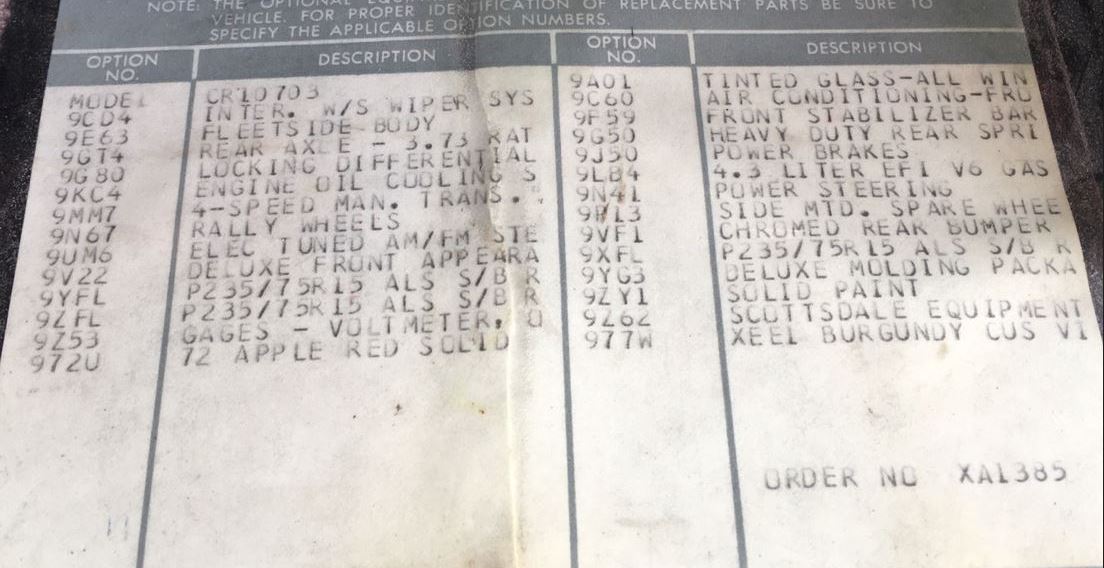 NOTE: THE OPTIONAL
VEHICLE. FOR PROPER IDENTIFICATION OF REPLACEMENT PARTS BE SURE TO
SPECIFY THE APPLICABLE OPTION NUMBERS.
OPTION NO. DESCRIPTION
MODEL CR10703
9CD4 INTER. W/S WIPER SYS
9E63 FLEETSIDE BODY
9GT4 REAR AXLE - 3.73 RAT
9G80 LOCKING DIFFERENTIAL
9KC4 ENGINE OIL COOLING S
9MM7 4-SPEED MAN. TRANS.
9N67 RALLY WHEELS
9UM6 ELEC TUNED AM/FM STE
9V22 DELUXE FRONT APPEARA
9YFL P235/75R15 ALS S/B R
9ZFL P235/75R15 ALS S/B R
9Z53 GAGES - VOLTMETER, O
972U 72 APPLE RED SOLID
OPTION NO. DESCRIPTION
9A01 TINTED GLASS-ALL WIN
9C60 AIR CONDITIONING-FRO
9F59 FRONT STABILIZER BAR
9G50 HEAVY DUTY REAR SPRI
9J50 POWER BRAKES
9LB4 4.3 LITER EFI V6 GAS
9N41 POWER STEERING
9P13 SIDE MTD. SPARE WHEE
9VF1 CHROMED REAR BUMPER
9XFL P235/75R15 ALS S/B R
9YG3 DELUXE MOLDING PACKA
9ZY1 SOLID PAINT
9Z62 SCOTTSDALE EQUIPMENT
977W XEEL BURGUNDY CUS VI
ORDER NO XA1385